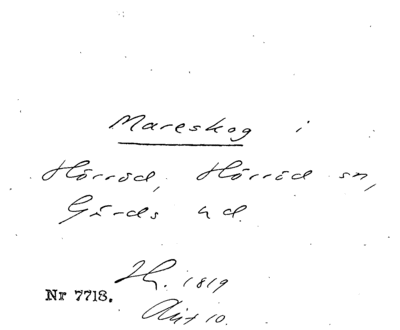 Mareskog i
Hörröd, Hörröd sn,
Gärds hd.
H. 1819
Nr 7718.
Akt 10.